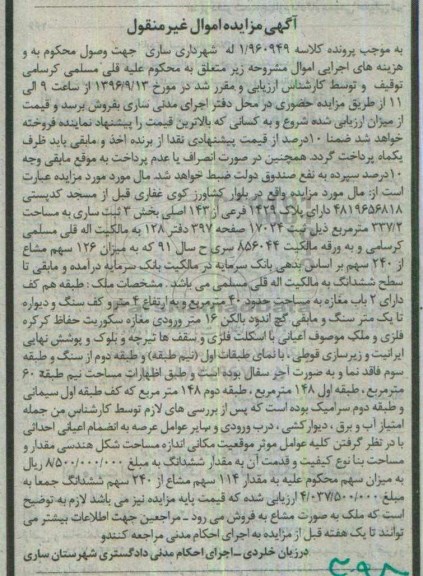 آگهی مزایده اموال غیر منقول
به موجب پرونده کلاسه ۱/۹۶۰۹۴۹ له شهرداری ساری جهت وصول محکوم به و
هزینه های اجرایی اموال مشروحه زیر متعلق به محکوم علیه قلی مسلمی کرسامی
توقیف و توسط کارشناس ارزیابی و مقرر شد در مورخ ۱۳۹۶/۹/۱۳ از ساعت ۹ الی
۱۱ از طریق مزایده حضوری در محل دفتر اجرای مدنی ساری بفروش برسد و قیمت
از میزان ارزیابی شده شروع و به کسانی که بالاترین قیمت را پیشنهاد نماینده فروخته
خواهد شد ضمنا ۱۰درصد از قیمت پیشنهادی نقدا از برنده اخذ و مابقی باید ظرف
یکماه پرداخت گردد. همچنین در صورت انصراف یا عدم پرداخت به موقع مابقی وجه
۱۰درصد سپرده به نفع صندوق دولت ضبط خواهد شد. مال مورد مورد مزایده عبارت
است از: مال مورد مزایده واقع در بلوار کشاورز کوی غفاری قبل از مسجد کدپستی
۴۸۱۹۶۵۶۸۱۸ دارای پلاک ۱۴۳۹ فرعی از ۱۴۳ اصلی بخش ۳ ثبت ساری به مساحت
۳۳۷/۲ مترمربع ذیل ثبت ۱۷۰۲۴ صفحه ۳۹۷ دفتر ۱۲۸ به مالکیت اله قلی مسلمی
کرسامی و به ورقه مالکیت ۸۵۶۰۴۴ سری ح سال ۹۱ که به میزان ۱۲۶ سهم مشاع
از ۲۴۰ سهم بر اساس بدهی بانک سرمایه در مالکیت بانک سرمایه درآمده و مابقی تا
سطح ششدانگ به مالکیت اله قلی مسلمی می باشد. مشخصات ملک: طبقه هم کف
دارای ۲ باب مغازه به مساحت حدود ۴۰ مترمربع و به ارتفاع ۴ متر و کف سنگ و دیواره
تا یک متر سنگ و مابقی گچ اندود بالکن ۱۶ متر ورودی مغازه سکوریت حفاظ کرکره
فلزی و ملک موصوف اعیانی با اسکلت فلزی و سقف ها تیرچه و بلوک و پوشش نهایی
ایرانیت و زیرسازی قوطی، با نمای طبقات اول (نیم طبقه) و طبقه دوم از سنگ و طبقه
سوم فاقد نما و به صورت آجر سفال بوده است و طبق اظهارات مساحت نیم طبقه ۶۰
مترمربع، طبقه اول ۱۴۸ مترمربع، طبقه دوم ۱۴۸ متر مربع که کف طبقه اول سیمانی
و طبقه دوم سرامیک بوده است که پس از بررسی های لازم توسط کارشناس من جمله
امتیاز آب و برق، دیوارکشی، درب ورودی و سایر عوامل عرصه به انضمام اعیانی احداثی
با در نظر گرفتن کلیه عوامل موثر موقعیت مکانی اندازه مساحت شکل هندسی مقدار و
مساحت بنا نوع کیفیت و قدمت آن به مقدار ششدانگ به مبلغ ۸/۵۰۰/۰۰۰/۰۰۰ ریال
به میزان سهم محکوم علیه به مقدار ۱۱۴ سهم مشاع از ۲۴۰ سهم ششدانگ جمعا به
مبلغ ۴/۰۳۷/۵۰۰/۰۰۰ ارزیابی شده که قیمت پایه مزایده نیز می باشد لازم به توضیح
است که ملک به صورت مشاع به فروش می رود - مراجعین جهت اطلاعات بیشتر می
توانند تا یک هفته قبل از مزایده به اجرای احکام مدنی مراجعه کنندو
درزیان خلردی - اجرای احکام مدنی دادگستری شهرستان ساری